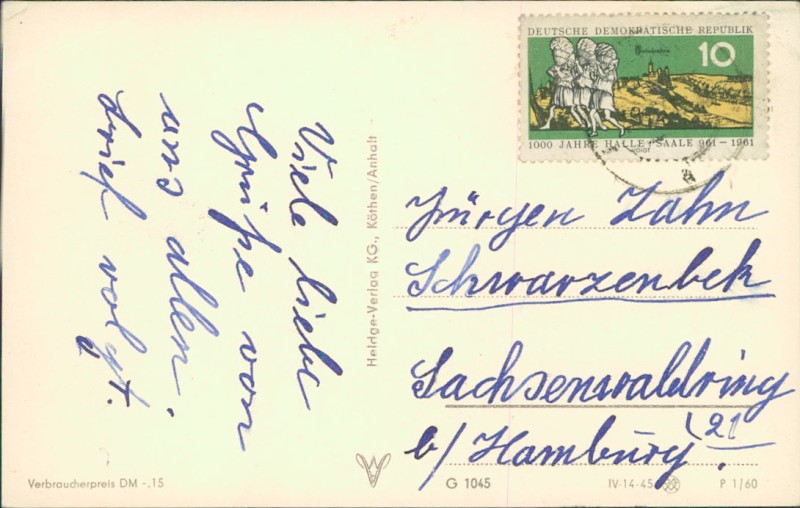 Viele liebe
Grüße von
uns allen.
Brief volgt.
DEUTSCHE DEMOKRATISCHE REPUBLIK
10
1000 JAHRE HALLE + SAALE 961 – 1961
VOIGT
Jürgen Zahn
Schwarzenbek
Sachsenwaldring
(21
b/ Hamburg.
Heldge-Verlag KG., Köthen/Anhalt
Verbraucherpreis DM -.15
G 1045
IV-14-45
P 1/60